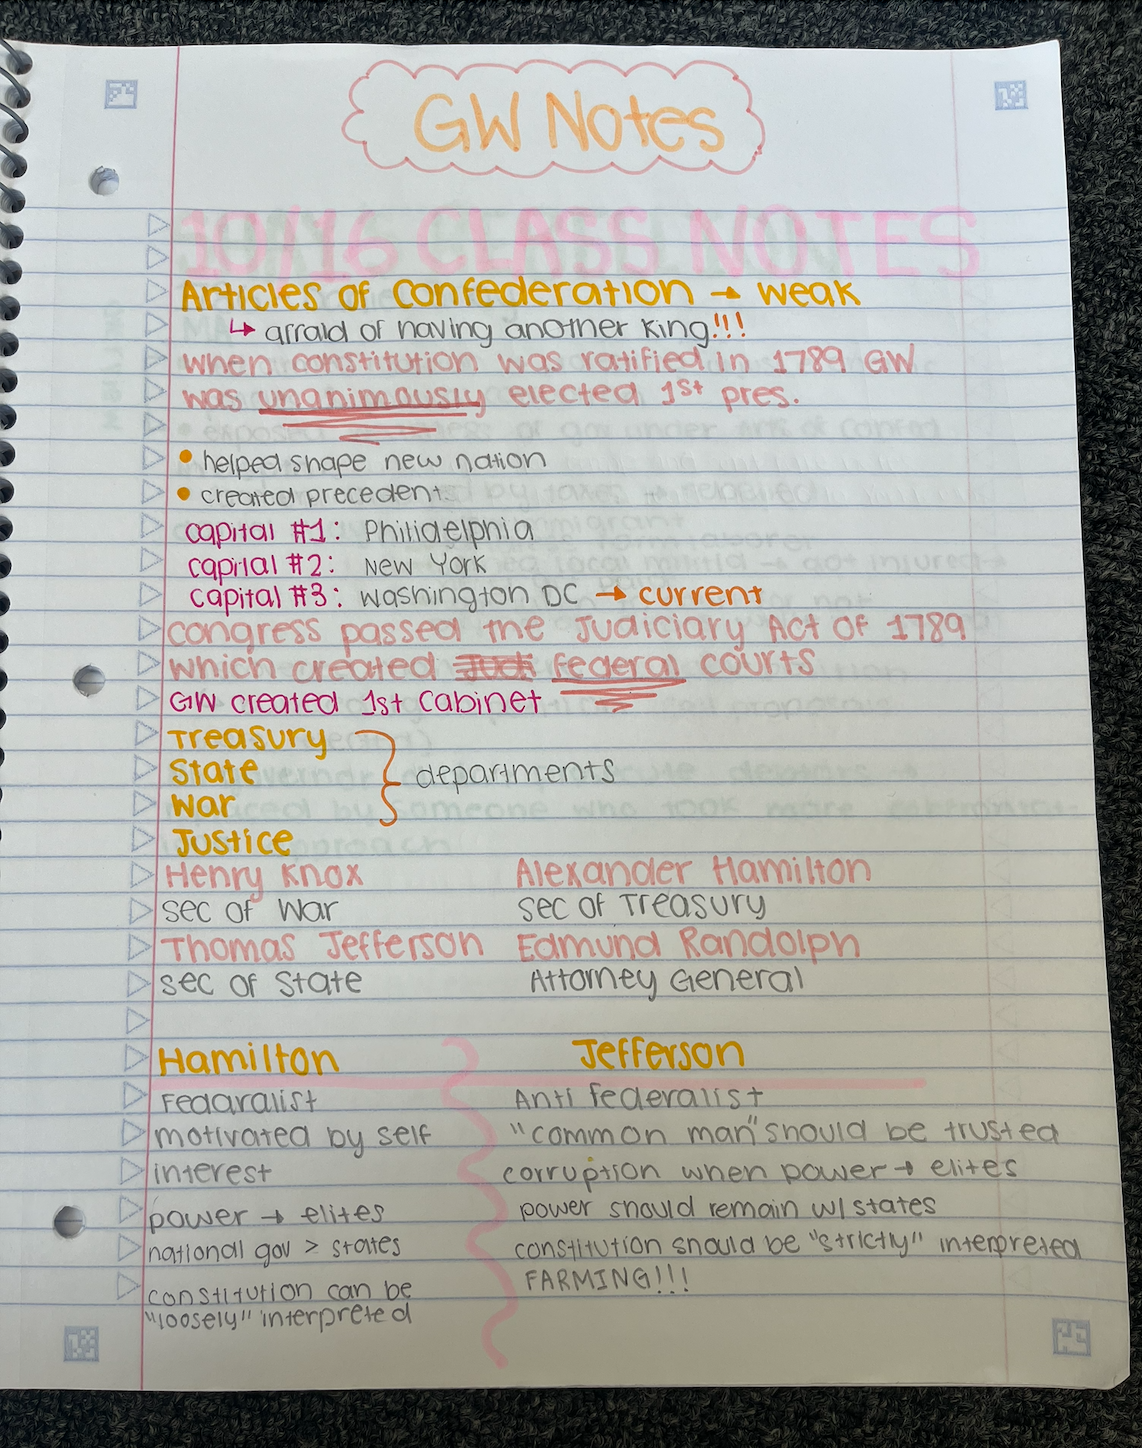 GW Notes
10/16 CLASS NOTES
Articles of Confederation → weak
↳ afraid of having another king!!!
when constitution was ratified in 1789 GW
was unanimously elected 1st pres.
• helped shape new nation
• created precedent
capital #1: Philidelphia
capital #2: New York
capital #3: Washington DC → current
congress passed the Judiciary Act of 1789
which created federal courts
GW created 1st cabinet
Treasury
State
War
departments
Justice
Henry Knox Alexander Hamilton
sec of War sec of Treasury
Thomas Jefferson Edmund Randolph
sec of State Attorney General
Hamilton Jefferson
Fedaralist Anti federalist
motivated by self "common man" should be trusted
interest corruption when power → elites
power → elites power should remain w/ states
national gov > states constitution should be "strictly" interpreted
constitution can be FARMING!!!
"loosely" interpreted